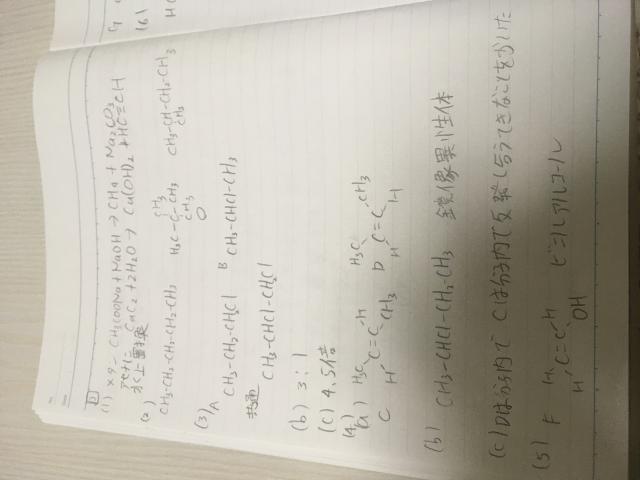 (1) メタン CH3COONa + NaOH → CH4 + Na2CO3
アセチレン CaC2 + 2H2O → Ca(OH)2 + HC≡CH
水上置換
(2)
CH3-CH2-CH2-CH2-CH3 H3C-C-CH3 CH3 CH3 CH3-CH-CH2-CH3 CH3
(3) A CH3-CH2-CH2Cl B CH3-CHCl-CH3
共通 CH3-CHCl-CH2Cl
(b) 3:1
(c) 4.5倍
(4)
(a) C H3C H C=C H CH3 D H3C H C=C CH3 H
(b) CH3-CHCl-CH2-CH3 鏡像異性体
(c) Dは分子内で Cは分子内で
(5) F H H C=C H OH ビニルアルコール
(6)